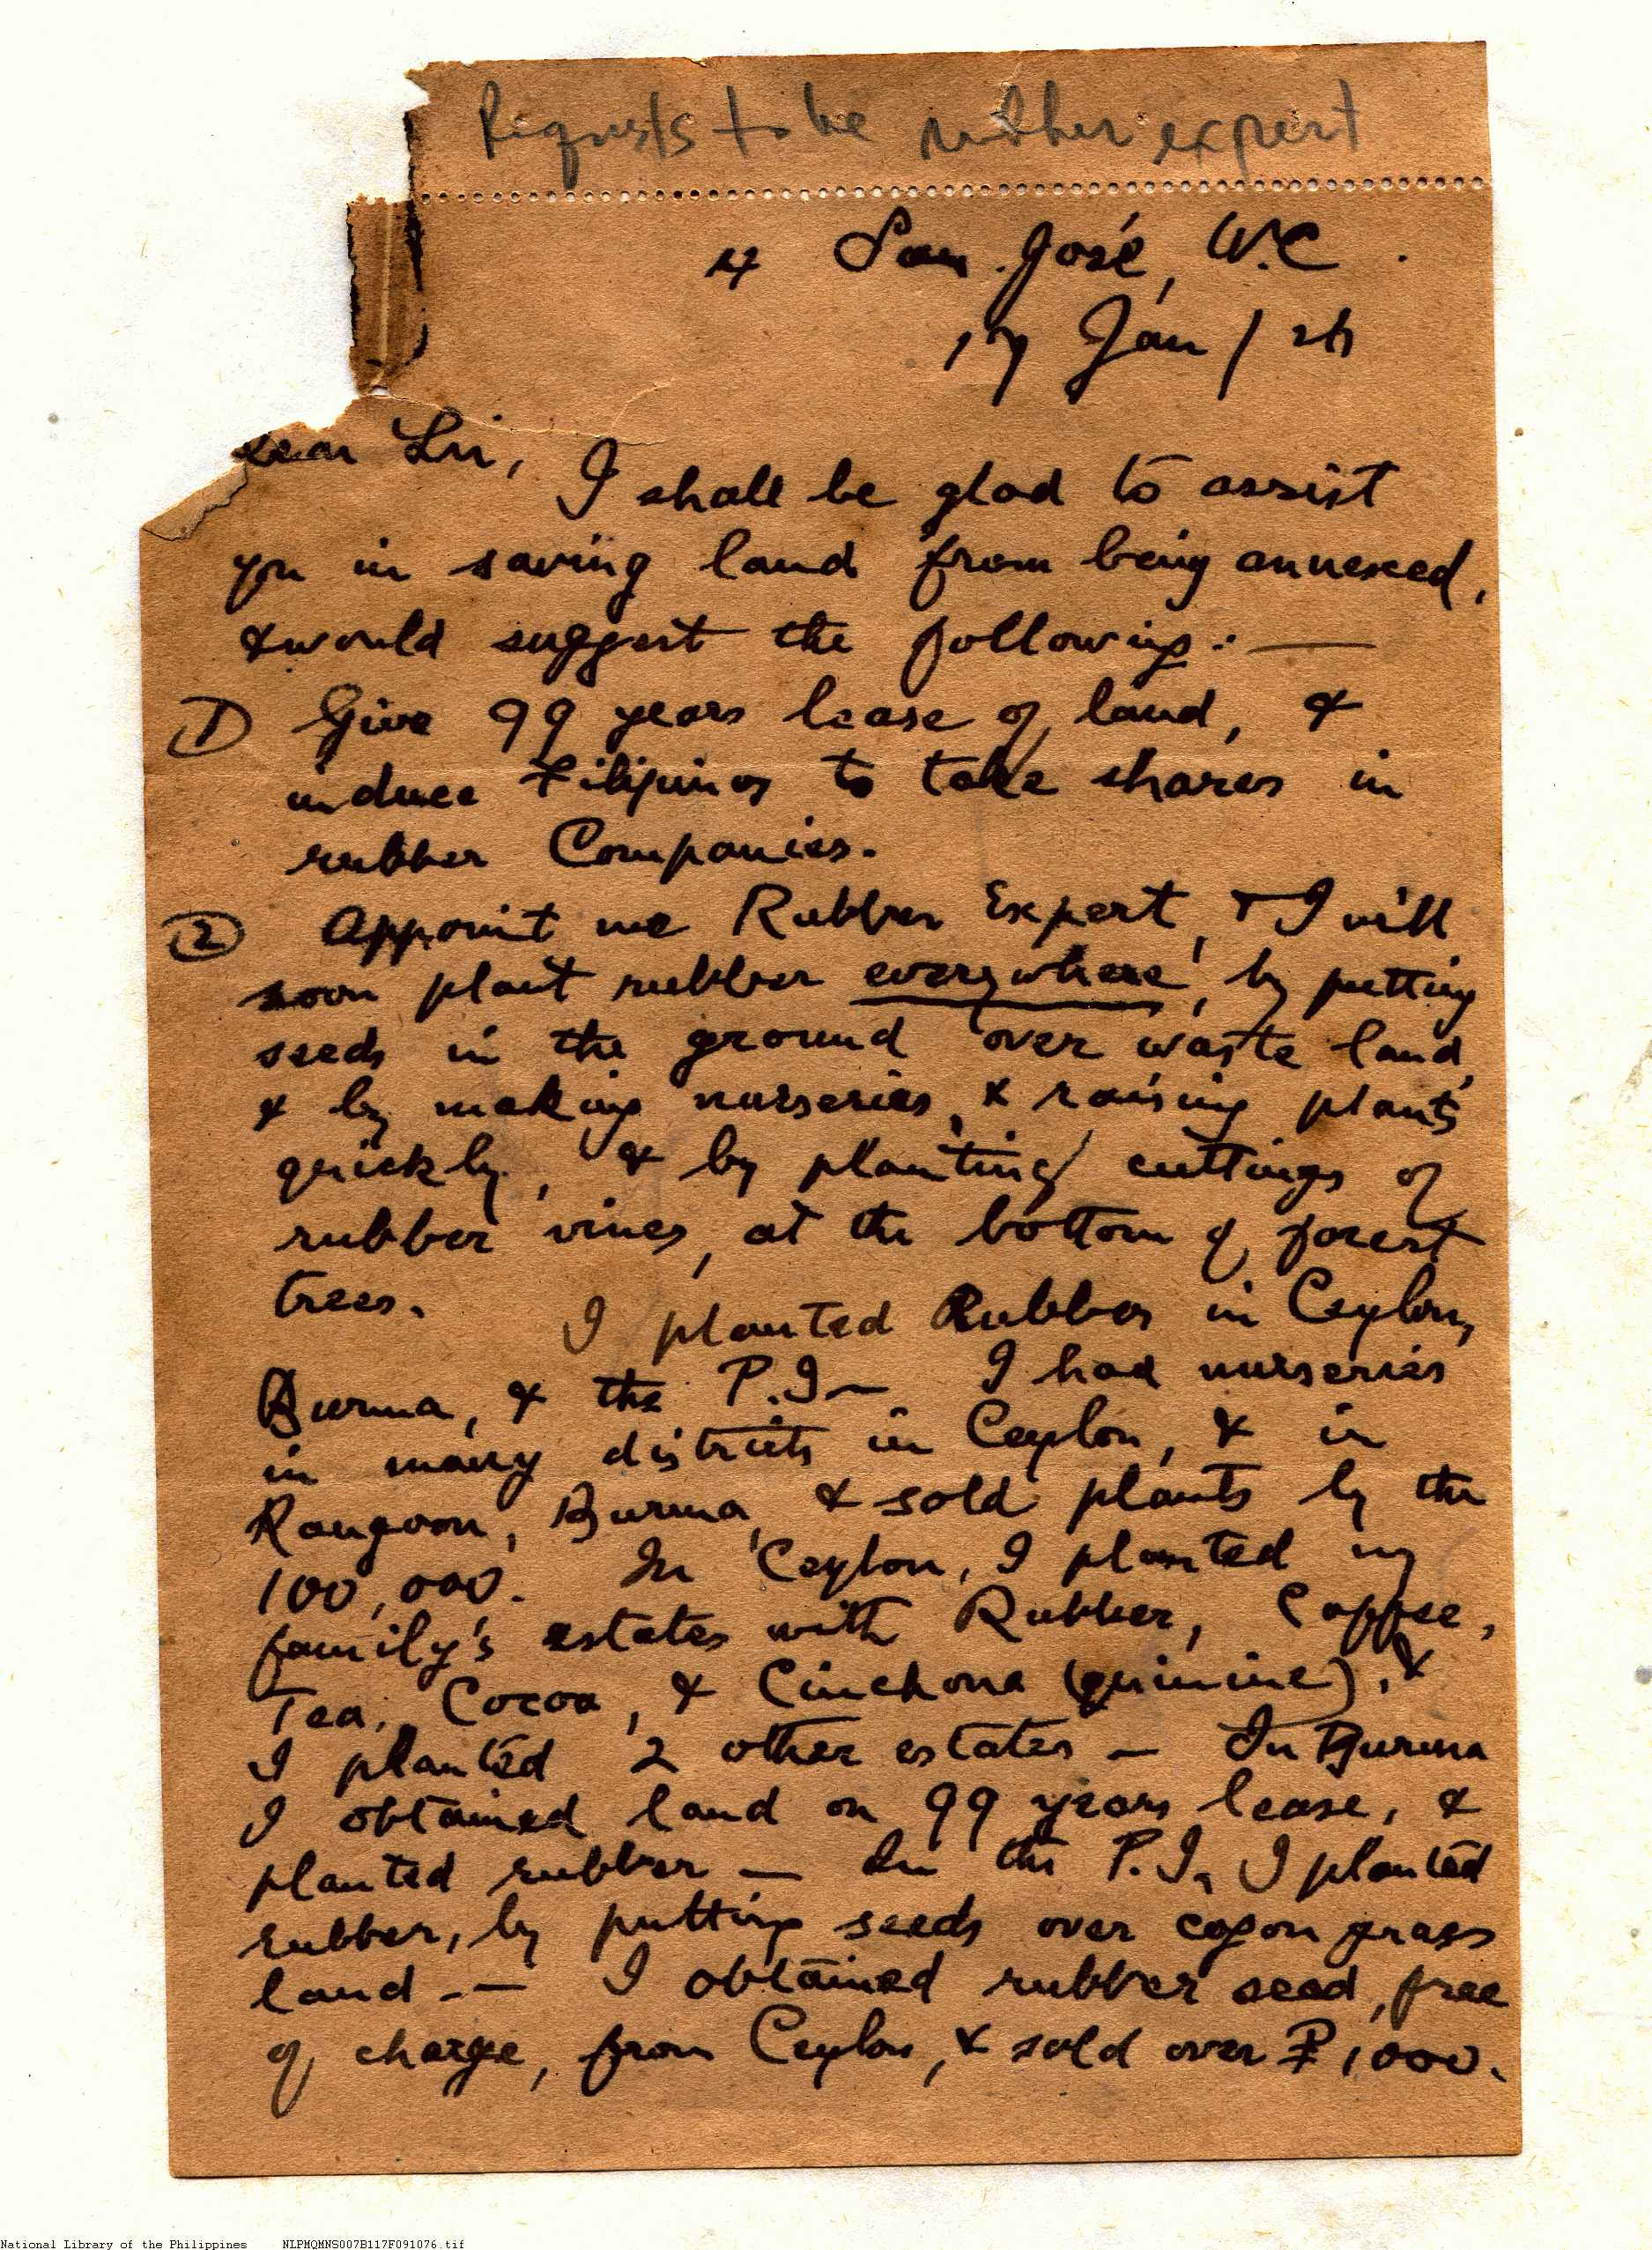 Requests to be rubber expert
San José, W.C.
17 Jan / 26
Dear Sir,
I shall be glad to assist
you in saving land from being annexed,
& would suggest the following: —
① Give 99 years lease of land, &
induce Filipinos to take shares in
rubber Companies.
② Appoint me Rubber Expert, & I will
soon plant rubber everywhere, by putting
seeds in the ground over waste land,
& by making nurseries, & raising plants
quickly, & by planting cuttings of
rubber vines, at the bottom of forest
trees.
I planted Rubber in Ceylon,
Burma, & the P.I — I had nurseries
in many districts in Ceylon, & in
Rangoon, Burma, & sold plants by the
100,000. In Ceylon, I planted my
family's estates with Rubber, Coffee,
Tea, Cocoa, & Cinchona (quinine), &
I planted 2 other estates — In Burma
I obtained land on 99 years lease, &
planted rubber — In the P.I. I planted
rubber, by putting seeds over cogon grass
land — I obtained rubber seed, free
of charge, from Ceylon, & sold over ₱1,000.
National Library of the Philippines NLPMQMNS007B117F091076.tif